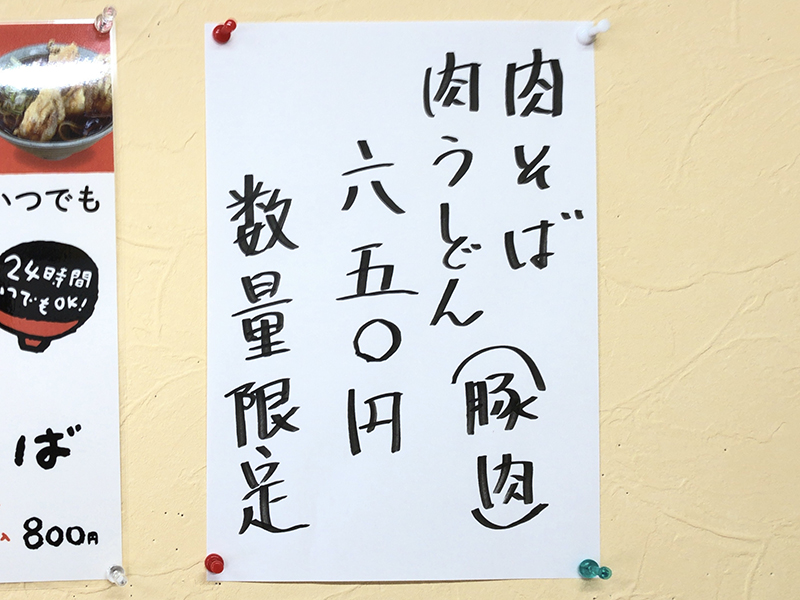 肉そば
肉うどん
(豚肉)
六五〇円
数量限定
いつでも
24時間
いつでもOK!
ば
800円